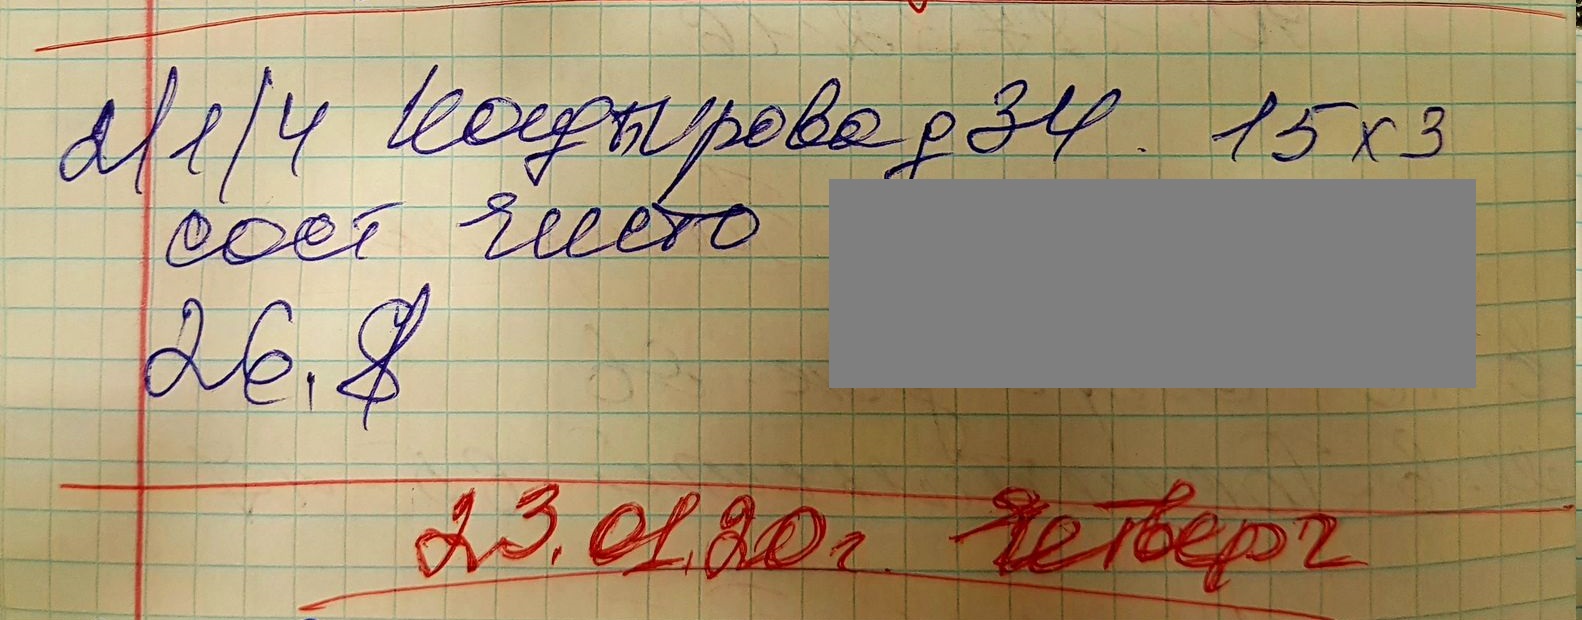 2/1/4 Кадырова д 34. 15 х 3
сост чисто
26.
23.01.20г. Четверг